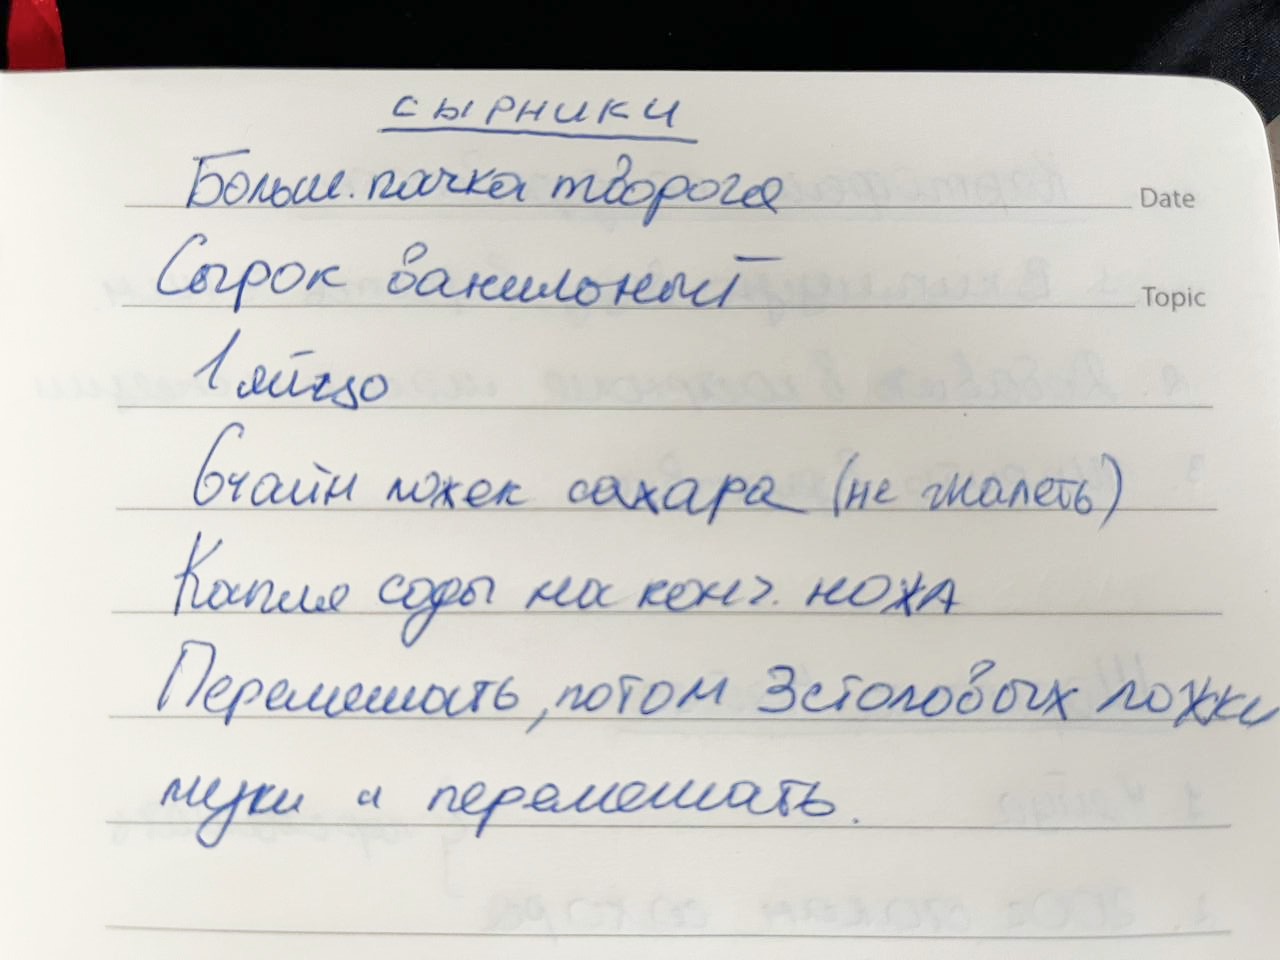 сырники
Больш. пачка творога
Date
Сырок ванильный
Topic
1 яйцо
6 чайн ложек сахара (не жалеть)
Капля соды на конч. ножа
Перемешать, потом 3 столовых ложки
муки и перемешать.